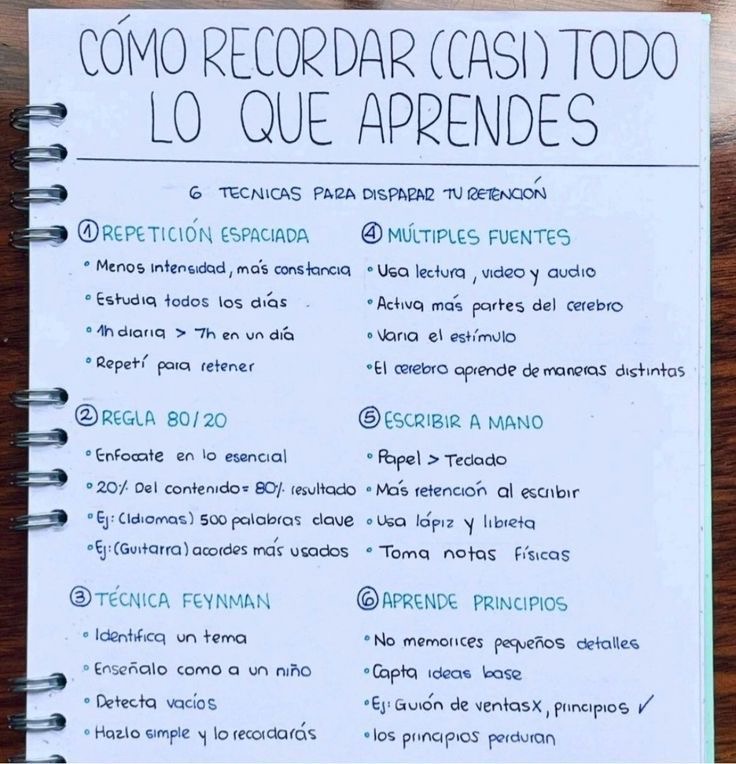 CÓMO RECORDAR (CASI) TODO
LO QUE APRENDES
6 TECNICAS PARA DISPARAR TU RETENCIÓN
① REPETICIÓN ESPACIADA
° Menos intensidad, más constancia
° Estudia todos los días
° 1h diaria > 7h en un día
° Repetí para retener
② REGLA 80/20
° Enfocate en lo esencial
° 20% Del contenido = 80% resultado
° Ej: (Idiomas) 500 palabras clave
° Ej: (Guitarra) acordes más usados
③ TÉCNICA FEYNMAN
° Identifica un tema
° Enseñalo como a un niño
° Detecta vacíos
° Hazlo simple y lo recordarás
④ MÚLTIPLES FUENTES
° Usa lectura, video y audio
° Activa más partes del cerebro
° Varia el estímulo
° El cerebro aprende de maneras distintas
⑤ ESCRIBIR A MANO
° Papel > Teclado
° Más retención al escribir
° Usa lápiz y libreta
° Toma notas físicas
⑥ APRENDE PRINCIPIOS
° No memorices pequeños detalles
° Capta ideas base
° Ej: Guión de ventas X, principios ✓
° los principios perduran